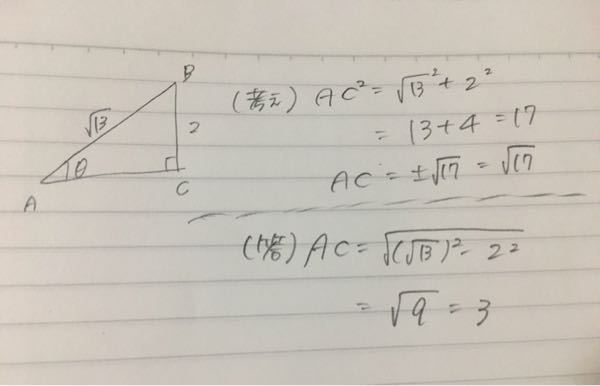 B
√13
2
θ
A
C
(考え) AC² = √13² + 2²
= 13 + 4 = 17
AC = ±√17 = √17
(解答) AC = √(√13)² - 2²
= √9 = 3